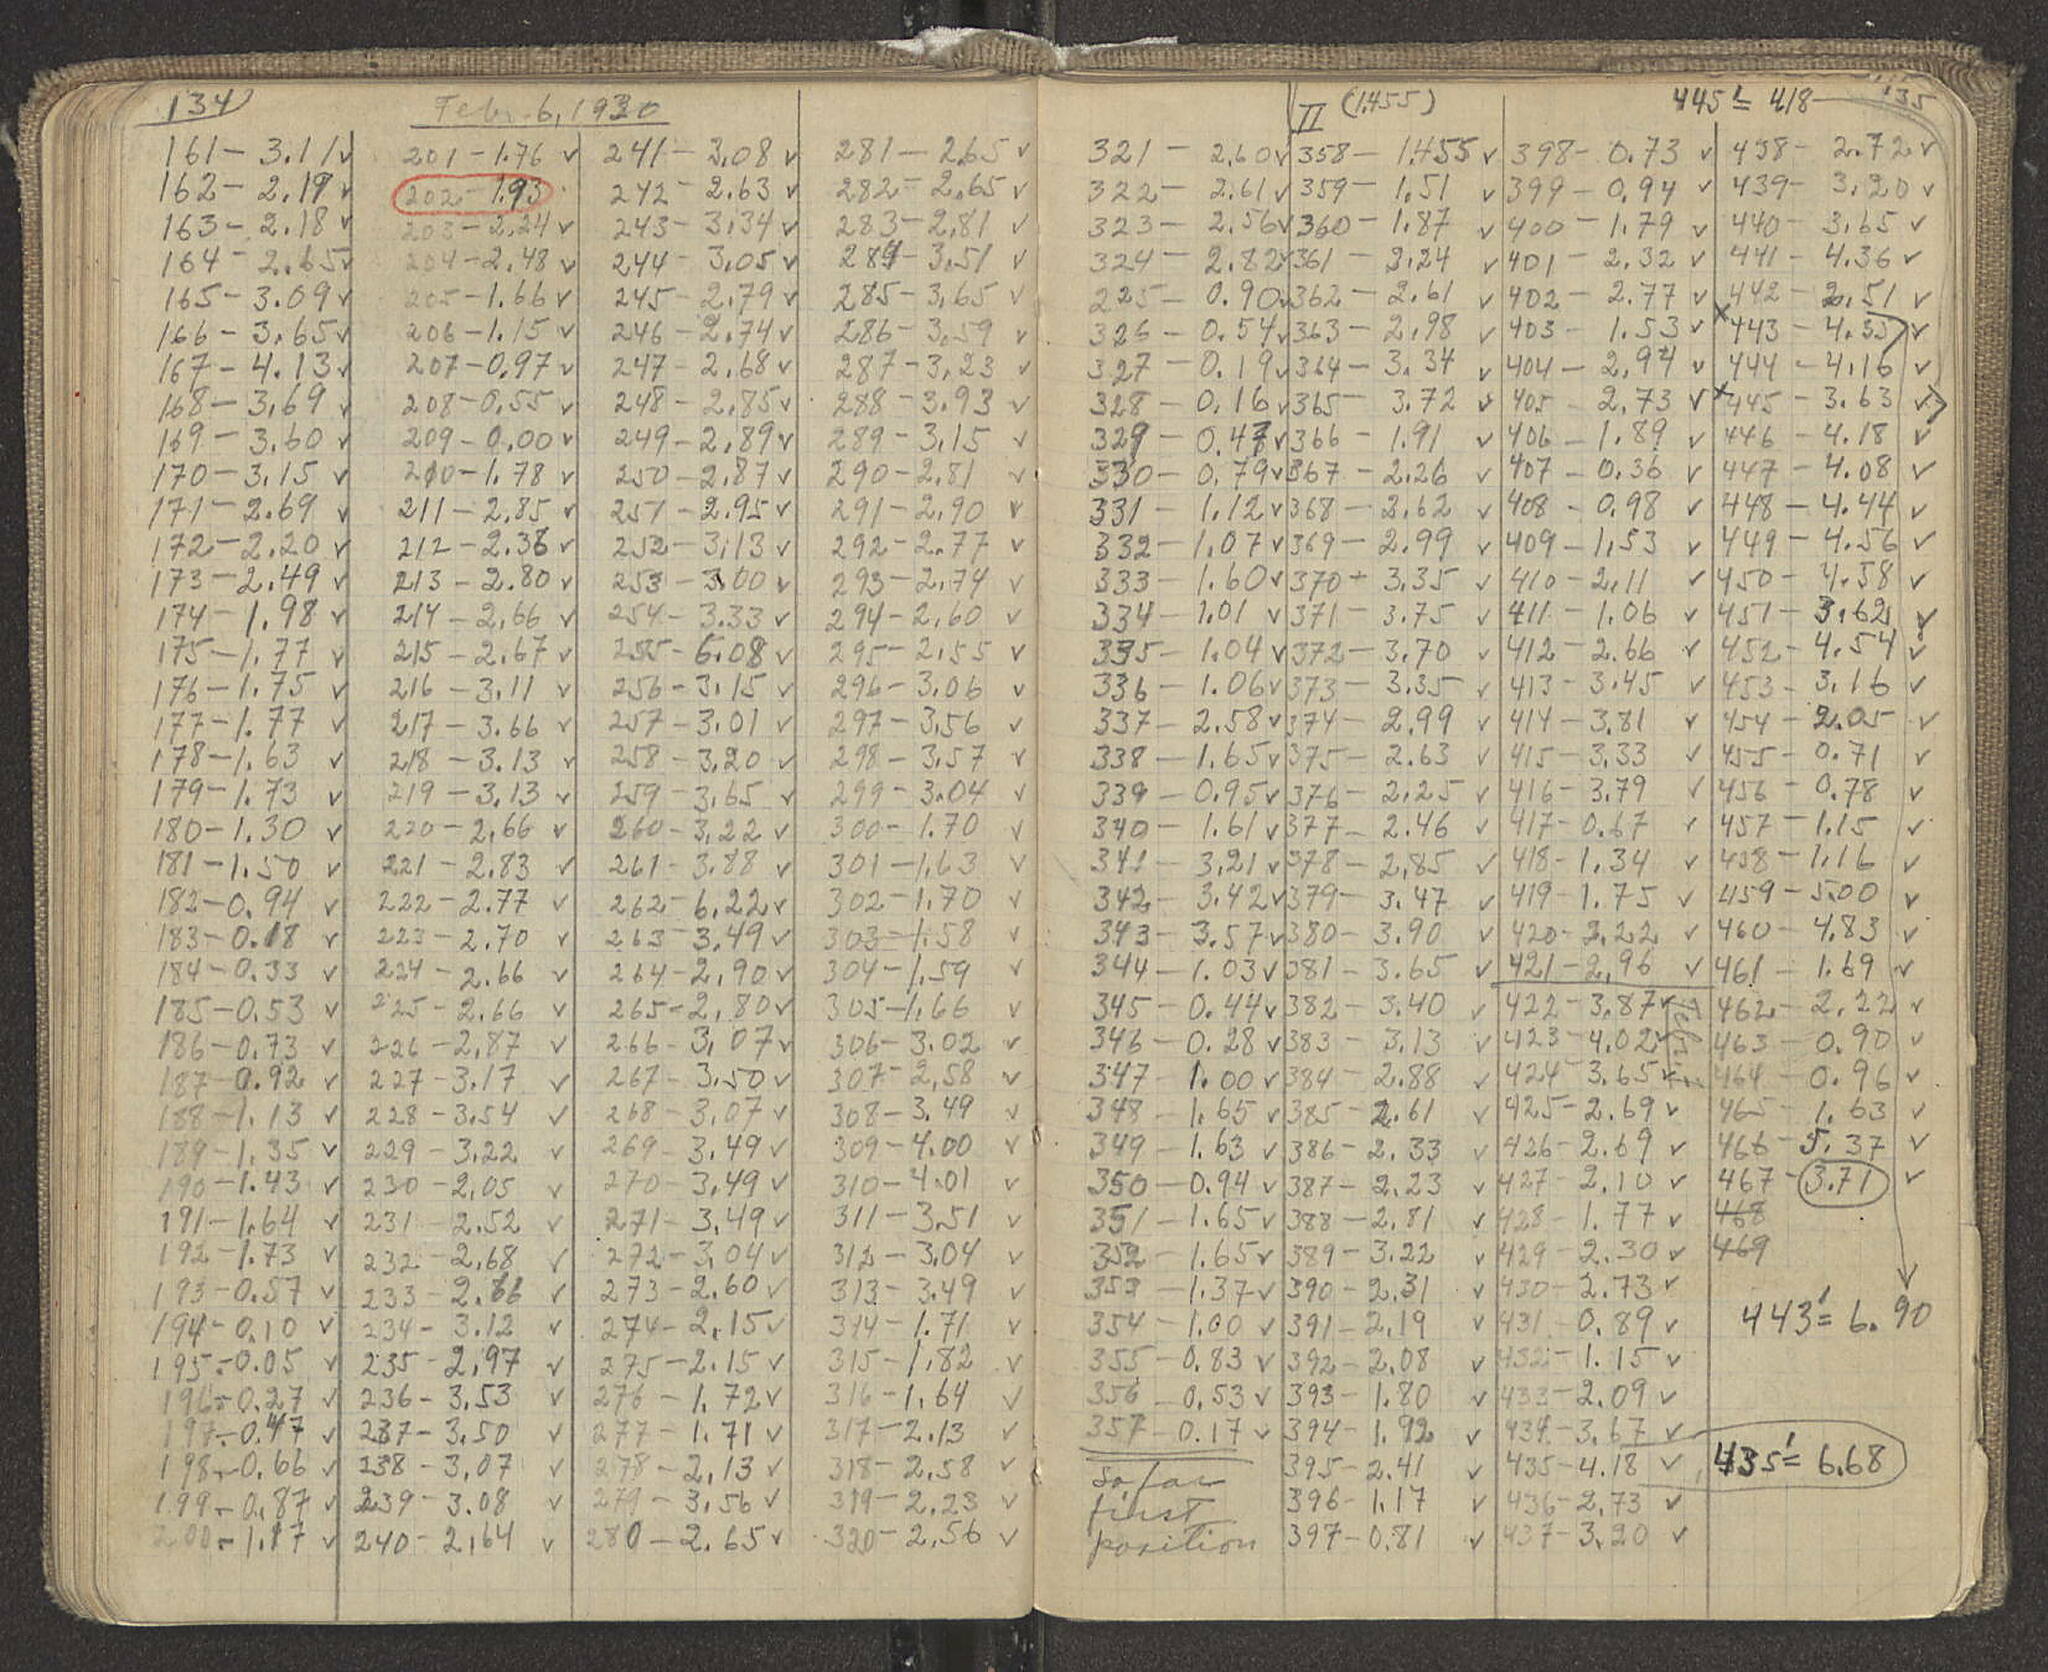 134
Febr. 6, 1930
161 - 3.11 ✓
162 - 2.19 ✓
163 - 2.18 ✓
164 - 2.65 ✓
165 - 3.09 ✓
166 - 3.65 ✓
167 - 4.13 ✓
168 - 3.69 ✓
169 - 3.60 ✓
170 - 3.15 ✓
171 - 2.69 ✓
172 - 2.20 ✓
173 - 2.49 ✓
174 - 1.98 ✓
175 - 1.77 ✓
176 - 1.75 ✓
177 - 1.77 ✓
178 - 1.63 ✓
179 - 1.73 ✓
180 - 1.30 ✓
181 - 1.50 ✓
182 - 0.94 ✓
183 - 0.18 ✓
184 - 0.33 ✓
185 - 0.53 ✓
186 - 0.73 ✓
187 - 0.92 ✓
188 - 1.13 ✓
189 - 1.35 ✓
190 - 1.43 ✓
191 - 1.64 ✓
192 - 1.73 ✓
193 - 0.57 ✓
194 - 0.10 ✓
195 - 0.05 ✓
196 - 0.27 ✓
197 - 0.47 ✓
198 - 0.66 ✓
199 - 0.87 ✓
200 - 1.17 ✓
201 - 1.76 ✓
202 - 1.93
203 - 2.24 ✓
204 - 2.48 ✓
205 - 1.66 ✓
206 - 1.15 ✓
207 - 0.97 ✓
208 - 0.55 ✓
209 - 0.00 ✓
210 - 1.78 ✓
211 - 2.85 ✓
212 - 2.38 ✓
213 - 2.80 ✓
214 - 2.66 ✓
215 - 2.67 ✓
216 - 3.11 ✓
217 - 3.66 ✓
218 - 3.13 ✓
219 - 3.13 ✓
220 - 2.66 ✓
221 - 2.83 ✓
222 - 2.77 ✓
223 - 2.70 ✓
224 - 2.66 ✓
225 - 2.66 ✓
226 - 2.87 ✓
227 - 3.17 ✓
228 - 3.54 ✓
229 - 3.22 ✓
230 - 2.05 ✓
231 - 2.52 ✓
232 - 2.68 ✓
233 - 2.66 ✓
234 - 3.12 ✓
235 - 2.97 ✓
236 - 3.53 ✓
237 - 3.50 ✓
238 - 3.07 ✓
239 - 3.08 ✓
240 - 2.64 ✓
241 - 3.08 ✓
242 - 2.63 ✓
243 - 3.34 ✓
244 - 3.05 ✓
245 - 2.79 ✓
246 - 2.74 ✓
247 - 2.68 ✓
248 - 2.85 ✓
249 - 2.89 ✓
250 - 2.87 ✓
251 - 2.95 ✓
252 - 3.13 ✓
253 - 3.00 ✓
254 - 3.33 ✓
255 - 6.08 ✓
256 - 3.15 ✓
257 - 3.01 ✓
258 - 3.20 ✓
259 - 3.65 ✓
260 - 3.22 ✓
261 - 3.88 ✓
262 - 6.22 ✓
263 - 3.49 ✓
264 - 2.90 ✓
265 - 2.80 ✓
266 - 3.07 ✓
267 - 3.50 ✓
268 - 3.07 ✓
269 - 3.49 ✓
270 - 3.49 ✓
271 - 3.49 ✓
272 - 3.04 ✓
273 - 2.60 ✓
274 - 2.15 ✓
275 - 2.15 ✓
276 - 1.72 ✓
277 - 1.71 ✓
278 - 2.13 ✓
279 - 3.56 ✓
280 - 2.65 ✓
281 - 2.65 ✓
282 - 2.65 ✓
283 - 2.81 ✓
284 - 3.51 ✓
285 - 3.65 ✓
286 - 3.59 ✓
287 - 3.23 ✓
288 - 3.93 ✓
289 - 3.15 ✓
290 - 2.81 ✓
291 - 2.90 ✓
292 - 2.77 ✓
293 - 2.74 ✓
294 - 2.60 ✓
295 - 2.55 ✓
296 - 3.06 ✓
297 - 3.56 ✓
298 - 3.57 ✓
299 - 3.04 ✓
300 - 1.70 ✓
301 - 1.63 ✓
302 - 1.70 ✓
303 - 1.58 ✓
304 - 1.59 ✓
305 - 1.66 ✓
306 - 3.02 ✓
307 - 2.58 ✓
308 - 3.49 ✓
309 - 4.00 ✓
310 - 4.01 ✓
311 - 3.51 ✓
312 - 3.04 ✓
313 - 3.49 ✓
314 - 1.71 ✓
315 - 1.82 ✓
316 - 1.64 ✓
317 - 2.13 ✓
318 - 2.58 ✓
319 - 2.23 ✓
320 - 2.56 ✓
II (1.455)
445' = 4.18
135
321 - 2.60 ✓
322 - 2.61 ✓
323 - 2.56 ✓
324 - 2.82 ✓
325 - 0.90 ✓
326 - 0.54 ✓
327 - 0.19 ✓
328 - 0.16 ✓
329 - 0.47 ✓
330 - 0.79 ✓
331 - 1.12 ✓
332 - 1.07 ✓
333 - 1.60 ✓
334 - 1.01 ✓
335 - 1.04 ✓
336 - 1.06 ✓
337 - 2.58 ✓
338 - 1.65 ✓
339 - 0.95 ✓
340 - 1.61 ✓
341 - 3.21 ✓
342 - 3.42 ✓
343 - 3.57 ✓
344 - 1.03 ✓
345 - 0.44 ✓
346 - 0.28 ✓
347 - 1.00 ✓
348 - 1.65 ✓
349 - 1.63 ✓
350 - 0.94 ✓
351 - 1.65 ✓
352 - 1.65 ✓
353 - 1.37 ✓
354 - 1.00 ✓
355 - 0.83 ✓
356 0.53 ✓
357 - 0.17 ✓
So far
first
position
358 - 1.455 ✓
359 - 1.51 ✓
360 - 1.87 ✓
361 - 2.24 ✓
362 - 2.61 ✓
363 - 2.98 ✓
364 - 3.34 ✓
365 - 3.72 ✓
366 - 1.91 ✓
367 - 2.26 ✓
368 - 2.62 ✓
369 - 2.99 ✓
370 - 3.35 ✓
371 - 3.75 ✓
372 - 3.70 ✓
373 - 3.35 ✓
374 - 2.99 ✓
375 - 2.63 ✓
376 - 2.25 ✓
377 - 2.46 ✓
378 - 2.85 ✓
379 - 3.47 ✓
380 - 3.90 ✓
381 - 3.65 ✓
382 - 3.40 ✓
383 - 3.13 ✓
384 - 2.88 ✓
385 - 2.61 ✓
386 - 2.33 ✓
387 - 2.23 ✓
388 - 2.81 ✓
389 - 3.22 ✓
390 - 2.31 ✓
391 - 2.19 ✓
392 - 2.08 ✓
393 - 1.80 ✓
394 - 1.92 ✓
395 - 2.41 ✓
396 - 1.17 ✓
397 - 0.81 ✓
398 - 0.73 ✓
399 - 0.94 ✓
400 - 1.79 ✓
401 - 2.32 ✓
402 - 2.77 ✓
403 - 1.53 ✓
404 - 2.94 ✓
405 - 2.73 ✓
406 - 1.89 ✓
407 - 0.36 ✓
408 - 0.98 ✓
409 - 1.53 ✓
410 - 2.11 ✓
411 - 1.06 ✓
412 - 2.66 ✓
413 - 3.45 ✓
414 - 3.81 ✓
415 - 3.33 ✓
416 - 3.79 ✓
417 - 0.67 ✓
418 - 1.34 ✓
419 - 1.75 ✓
420 - 2.22 ✓
421 - 2.96 ✓
422 - 3.87 ✓
423 - 4.02 ✓
424 - 3.65 ✓
425 - 2.69 ✓
426 - 2.69 ✓
427 - 2.10 ✓
428 - 1.77 ✓
429 - 2.30 ✓
430 - 2.73 ✓
431 - 0.89 ✓
432 - 1.15 ✓
433 - 2.09 ✓
434 - 3.67 ✓
435 - 4.18 ✓
436 - 2.73 ✓
437 - 3.20 ✓
438 - 2.72 ✓
439 - 3.20 ✓
440 - 3.65 ✓
441 - 4.36 ✓
442 - 2.51 ✓
x 443 - 4.35 ✓
444 - 4.16 ✓
x 445 - 3.63 ✓
446 - 4.18 ✓
447 - 4.08 ✓
448 - 4.44 ✓
449 - 4.56 ✓
450 - 4.58 ✓
451 - 3.62 ✓
452 - 4.54 ✓
453 - 3.16 ✓
454 - 2.05 ✓
455 - 0.71 ✓
456 - 0.78 ✓
457 - 1.15 ✓
458 - 1.16 ✓
459 - 5.00 ✓
460 - 4.83 ✓
461 - 1.69 ✓
462 - 2.22 ✓
463 - 0.90 ✓
464 - 0.96 ✓
465 - 1.63 ✓
466 - 5.37 ✓
467 - 3.71 ✓
468
469
443' = 6.90
435' = 6.68